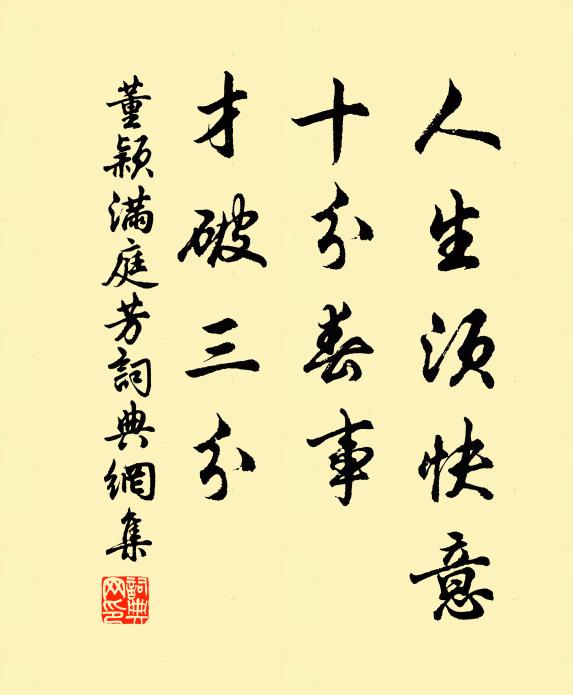 人生須快意
十分春事
才破三分
董穎滿庭芳詞典網集
詞典
网印